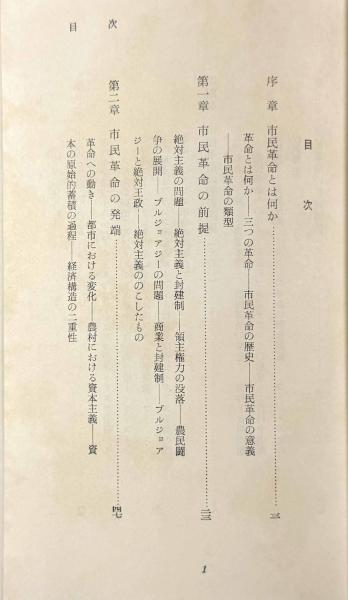 目次
目次
序章 市民革命とは何か……………………一
革命とは何か――三つの革命――市民革命の歴史――市民革命の意義
――市民革命の類型
第一章 市民革命の前提……………………二三
絶対主義の問題――絶対主義と封建制――領主権力の没落――農民闘
争の展開――ブルジョアジーの問題――商業と封建制――ブルジョア
ジーと絶対王政――絶対主義ののこしたもの
第二章 市民革命の発端……………………四七
革命への動き――都市における変化――農村における資本主義――資
本の原始的蓄積の過程――経済構造の二重性
1